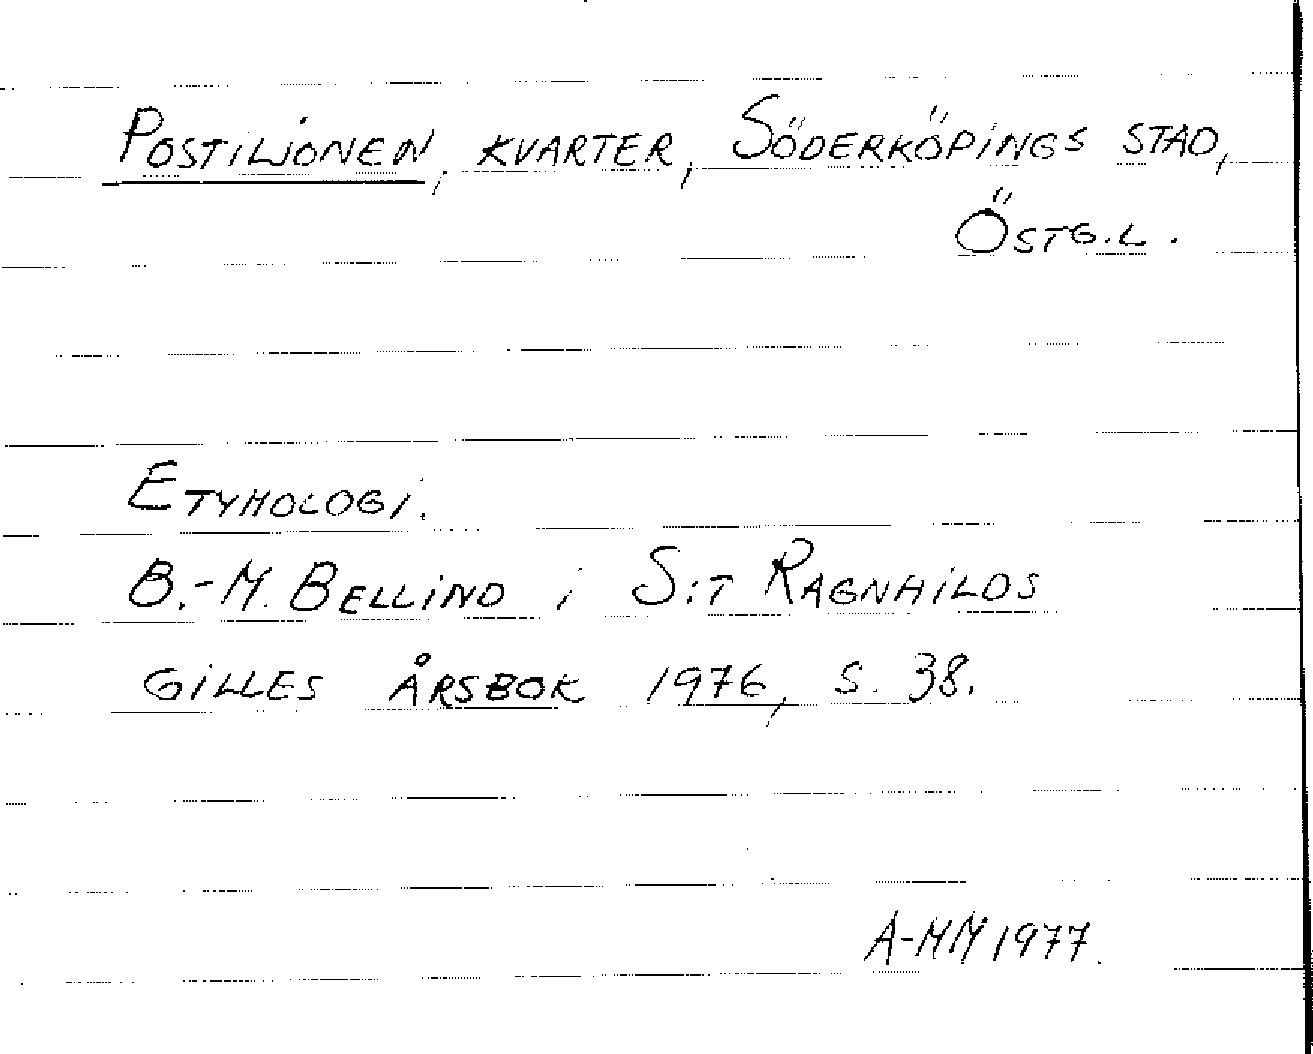 Postiljonen, kvarter, Söderköpings stad,
Östg.l.
Etymologi.
B.-M. Bellind i S:t Ragnhilds
gilles årsbok 1976, s. 38.
A-MM 1977.